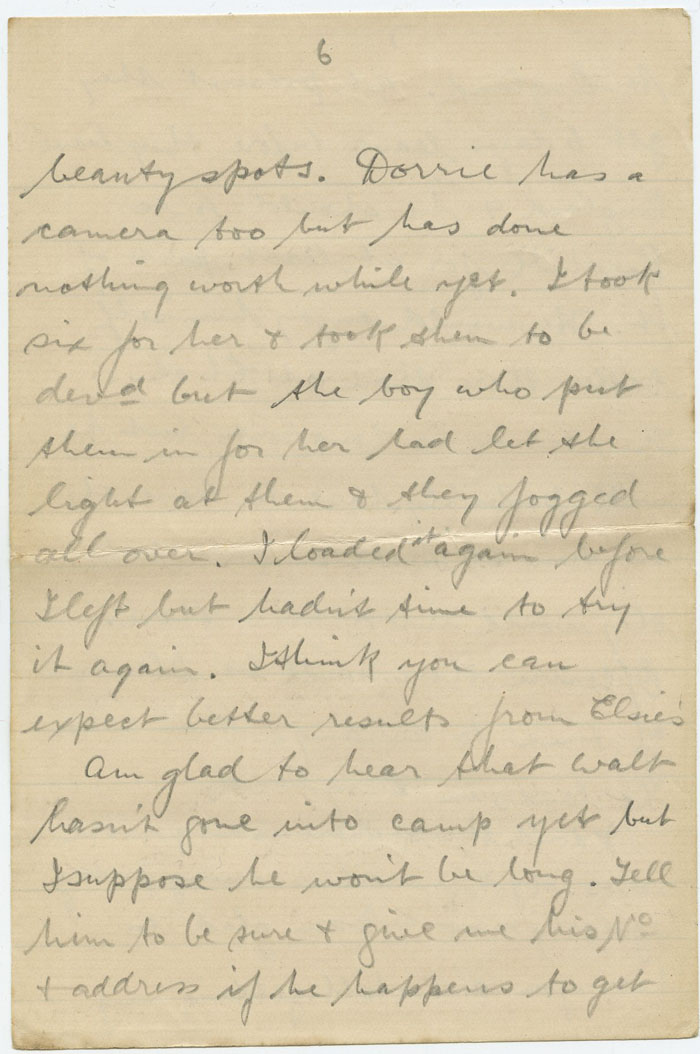 6
beauty spots. Dorrie has a
camera too but has done
nothing worth while yet. I took
six for her & took them to be
devd but the boy who put
them in for her had let the
light at them & they fogged
all over. I loaded it again before
I left but hadn't time to try
it again. I think you can
expect better results from Elsie's
Am glad to hear that Walt
hasn't gone into camp yet but
I suppose he won't be long. Tell
him to be sure & give me his No
& address if he happens to get